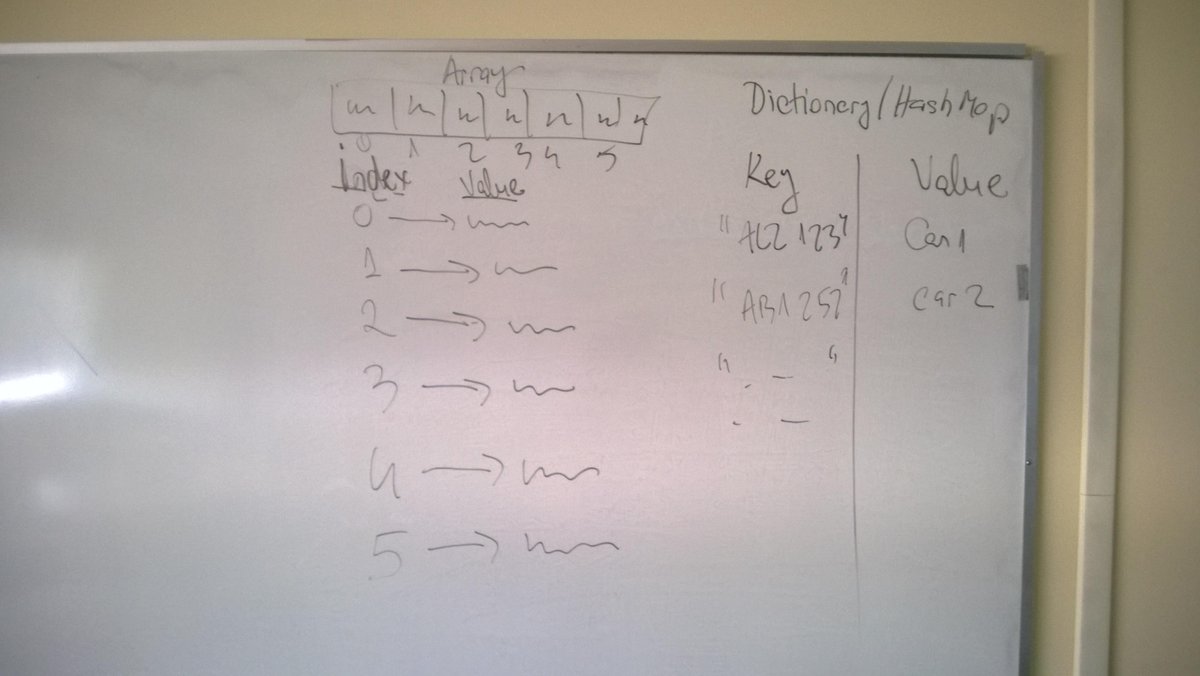 Array
0 1 2 3 4 5
Index Value
0 →
1 →
2 →
3 →
4 →
5 →
Dictionary/HashMap
Key Value
"ACZ 123" Car 1
"AB1 252" Car 2
" . - "
. -